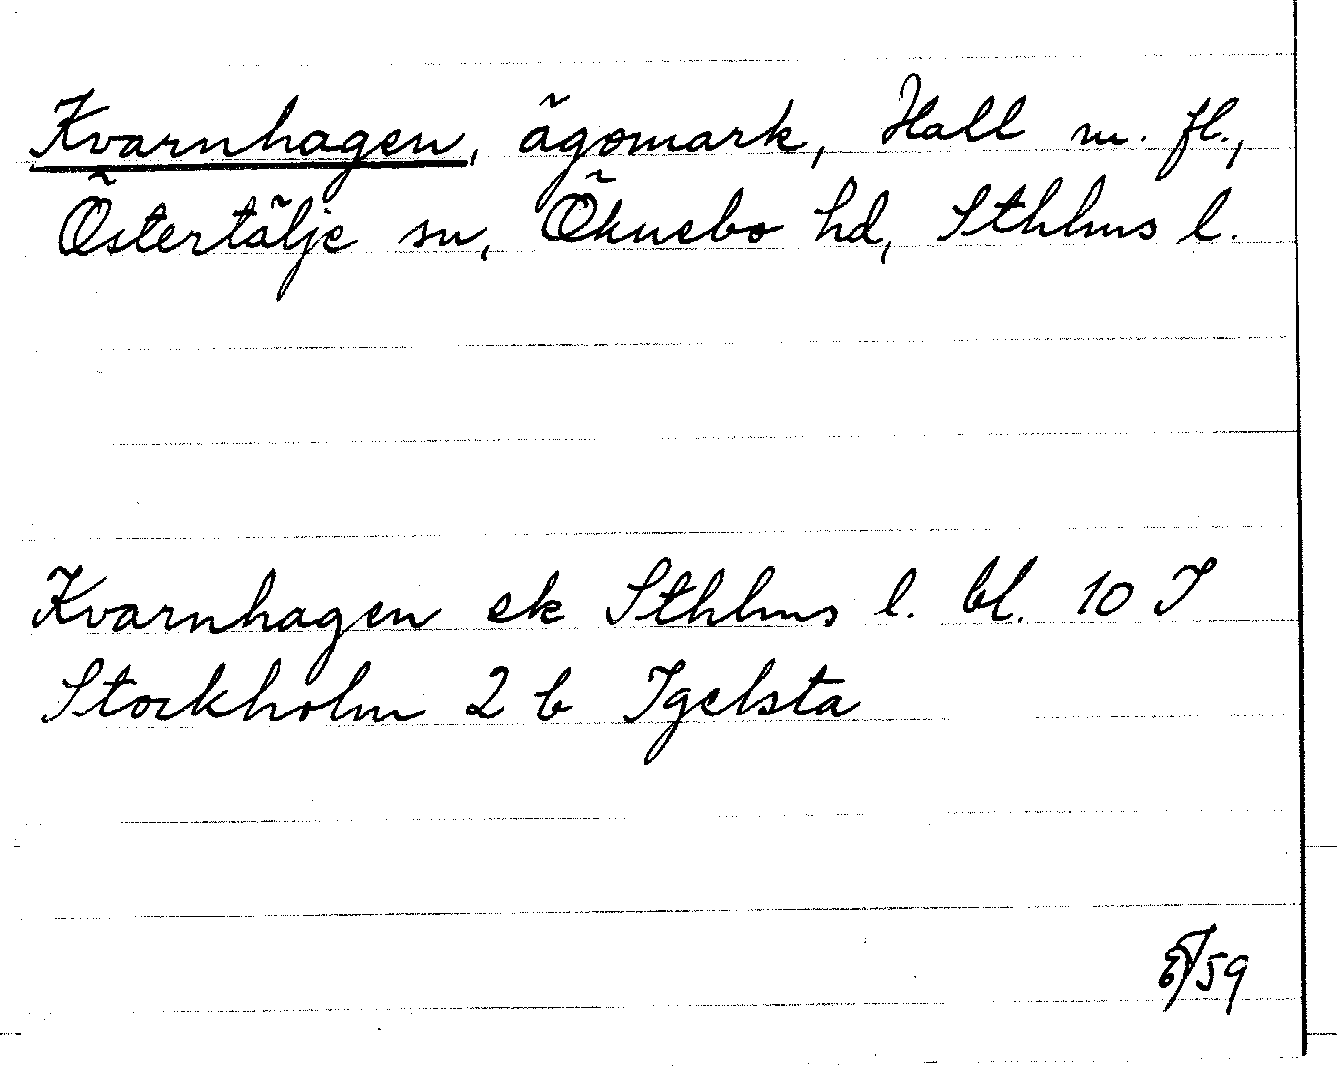 Kvarnhagen, ägomark, Hall m. fl.,
Östertälje sn, Öknebo hd, Sthlms l.
Kvarnhagen ek Sthlms l. bl. 10 I
Stockholm 2 b Igelsta
59